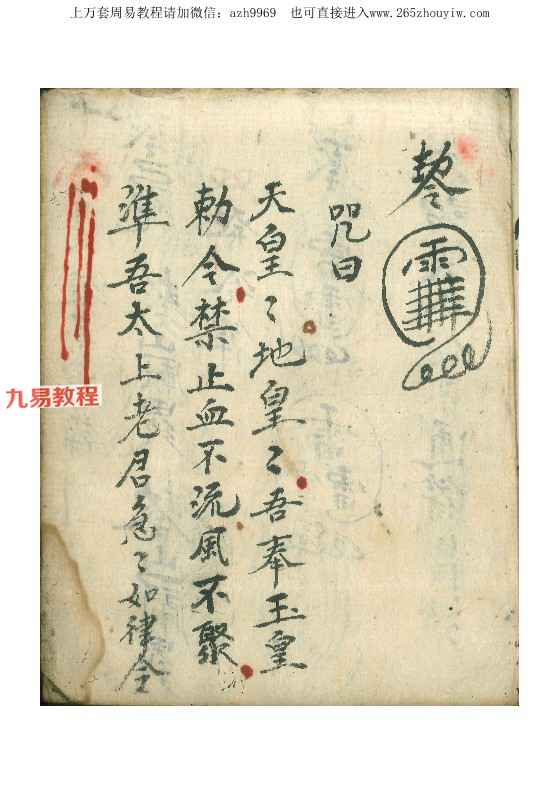 上万套周易教程请加微信：azh9969 也可直接进入www.265zhouyiw.com
咒曰
天皇〻地皇〻吾奉玉皇
勅令禁止血不流風不聚
準吾太上老君急〻如律令
九易教程